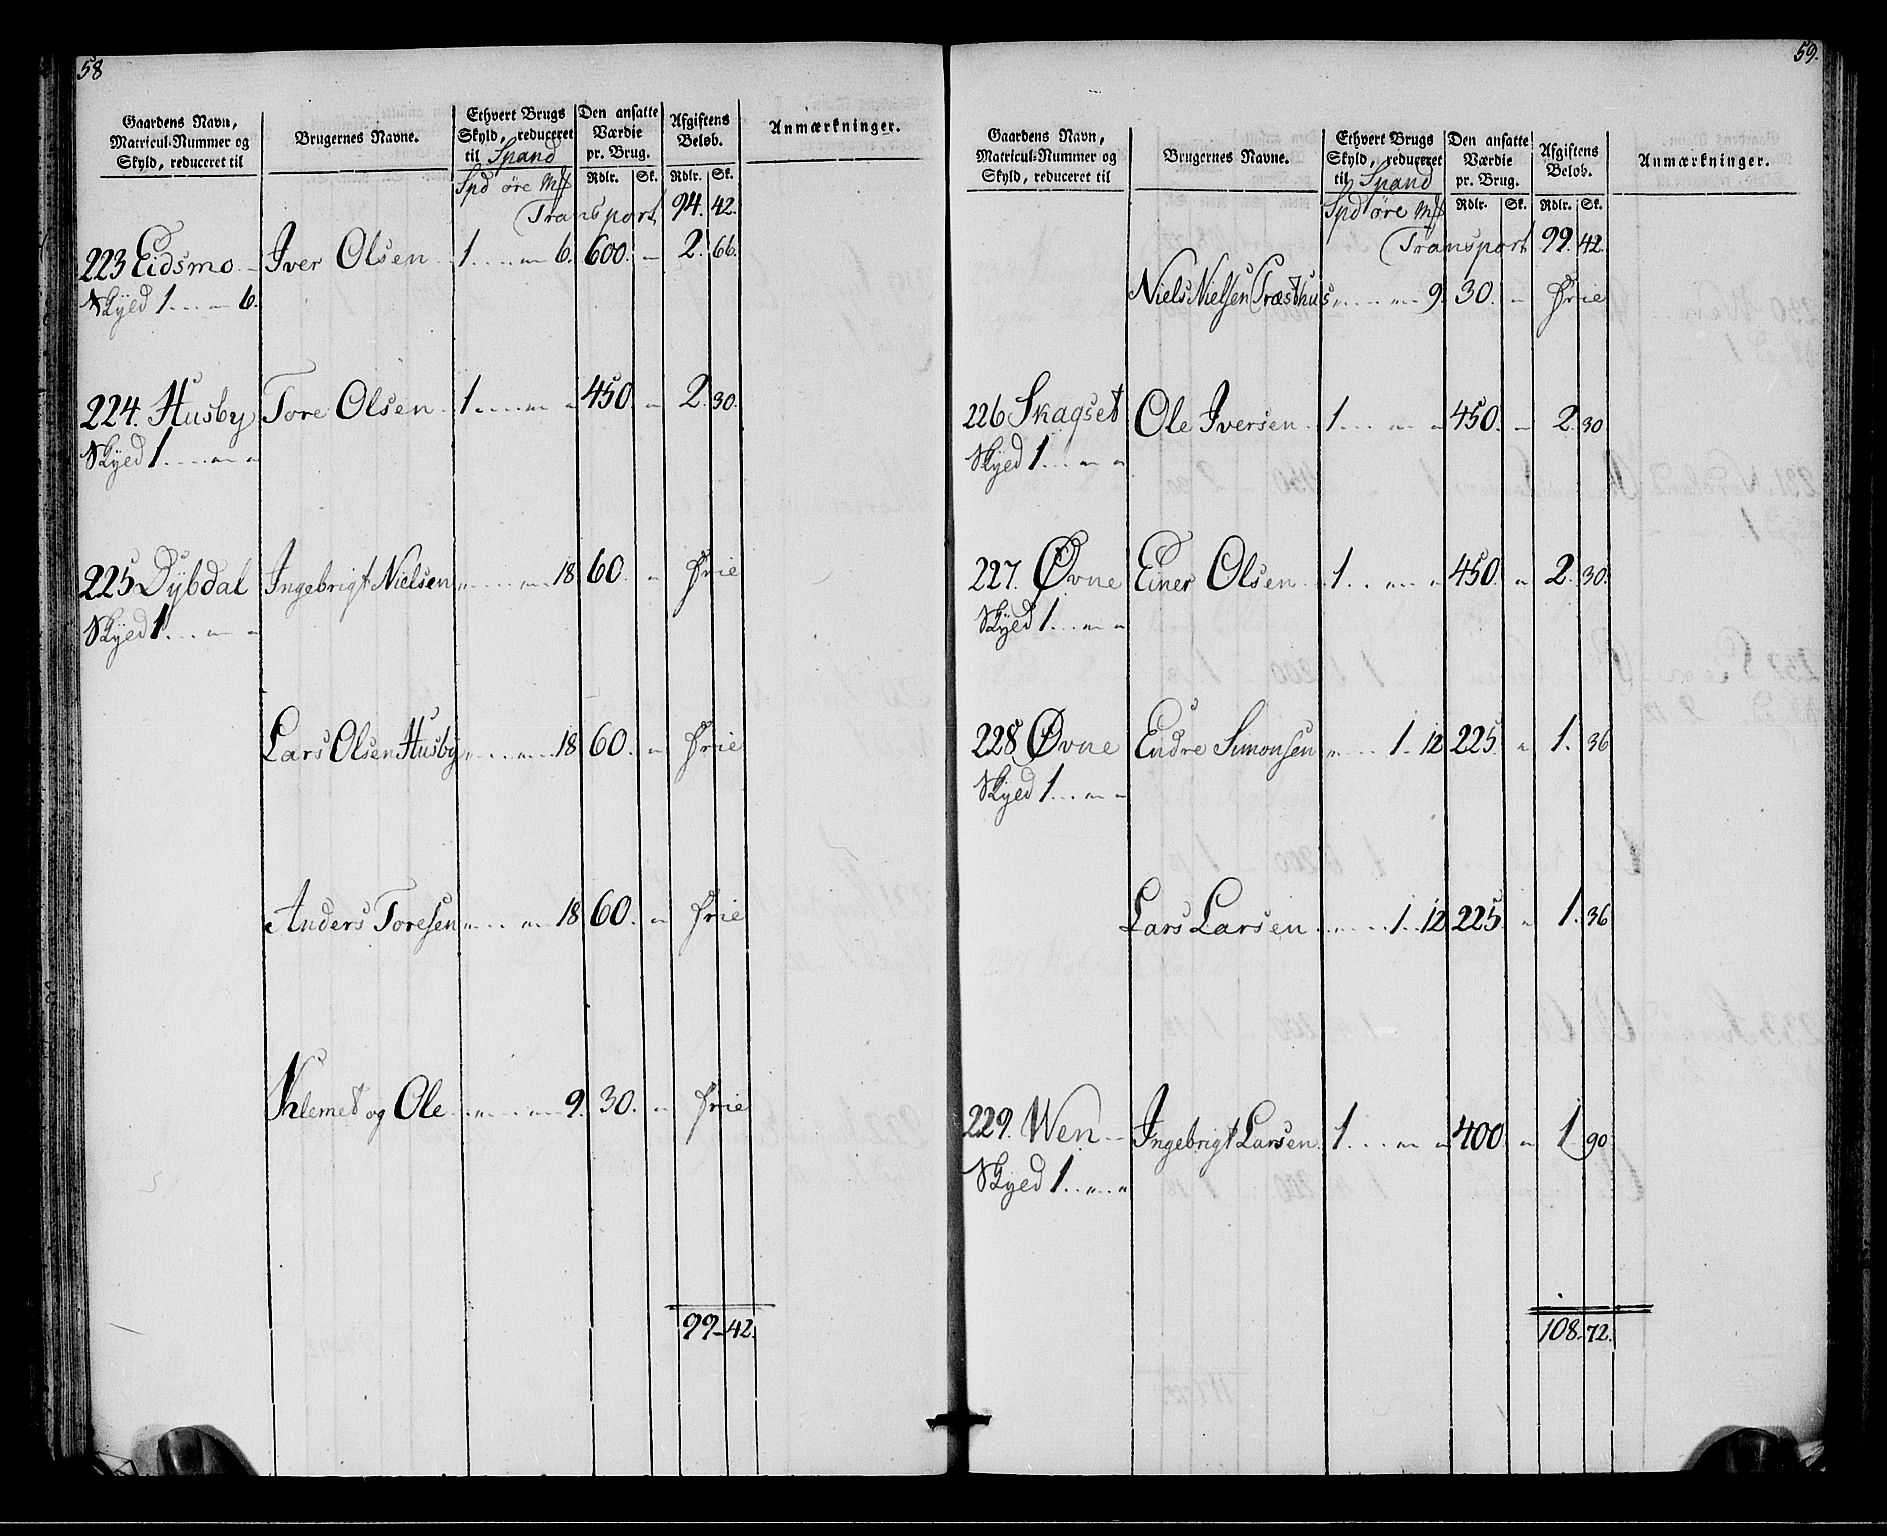 58
Gaardens Navn, Matricul-Nummer og Skyld, reduceret til
Brugernes Navne.
Ethvert Brugs Skyld, reduceret til Spand
Den ansatte Værdie pr. Brug.
Afgiftens Beløb.
Anmærkninger.
Spd øre Mk
Rdlr. Sk. Rdlr. Sk.
Transport 94. 42.
223 Eidsmo Iver Olsen 1 . . . „ 6. 600. „ 2. 66.
Skyld 1 . . . „ 6.
224. Husby Tore Olsen 1 . . . „ „ 450. „ 2. 30.
Skyld 1 . . . „ „
225 Dybdal Ingebrigt Nielsen „ . . . „ 18 60. „ frie
Skyld 1 . . . „ „
Lars Olsen Husby „ . . . „ 18 60. „ frie
Anders Toresen „ . . . „ 18 60. „ frie
Klemet og Ole „ . . . „ 9. 30. „ frie
99 42.
59.
Gaardens Navn, Matricul-Nummer og Skyld, reduceret til
Brugernes Navne.
Ethvert Brugs Skyld, reduceret til Spand
Den ansatte Værdie pr. Brug.
Afgiftens Beløb.
Anmærkninger.
Spd øre Mk
Rdlr. Sk. Rdlr. Sk.
Transport 99. 42.
Niels Nielsen Træsthus „ . . . „ 9. 30. „ frie
226 Skagset Ole Iversen 1 . . . „ „ 450. „ 2. 30
Skyld 1 . . . „ „
227. Øvne Einer Olsen 1 . . . „ „ 450. „ 2. 30.
Skyld 1 . . . „ „
228 Øvne Endre Simonsen „ . . . 1. 12 225. „ 1. 36
Skyld 1 . . . „ „
Lars Larsen „ . . . 1. 12 225. „ 1. 36
229. Wen Ingebrigt Larsen 1 . . . „ „ 400. „ 1 90.
Skyld 1 . . . „ „
108. 72.